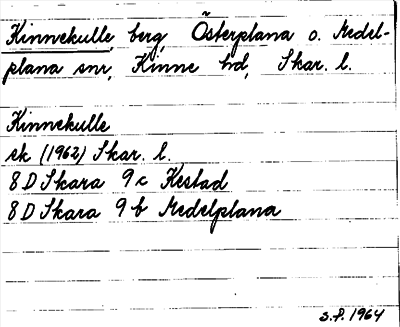 Kinnekulle, berg, Österplana o. Medel-
plana snr, Kinne hd, Skar. l.
Kinnekulle
ek (1962) Skar. l.
8 D Skara 9 c Kestad
8 D Skara 9 b Medelplana
S.P. 1964